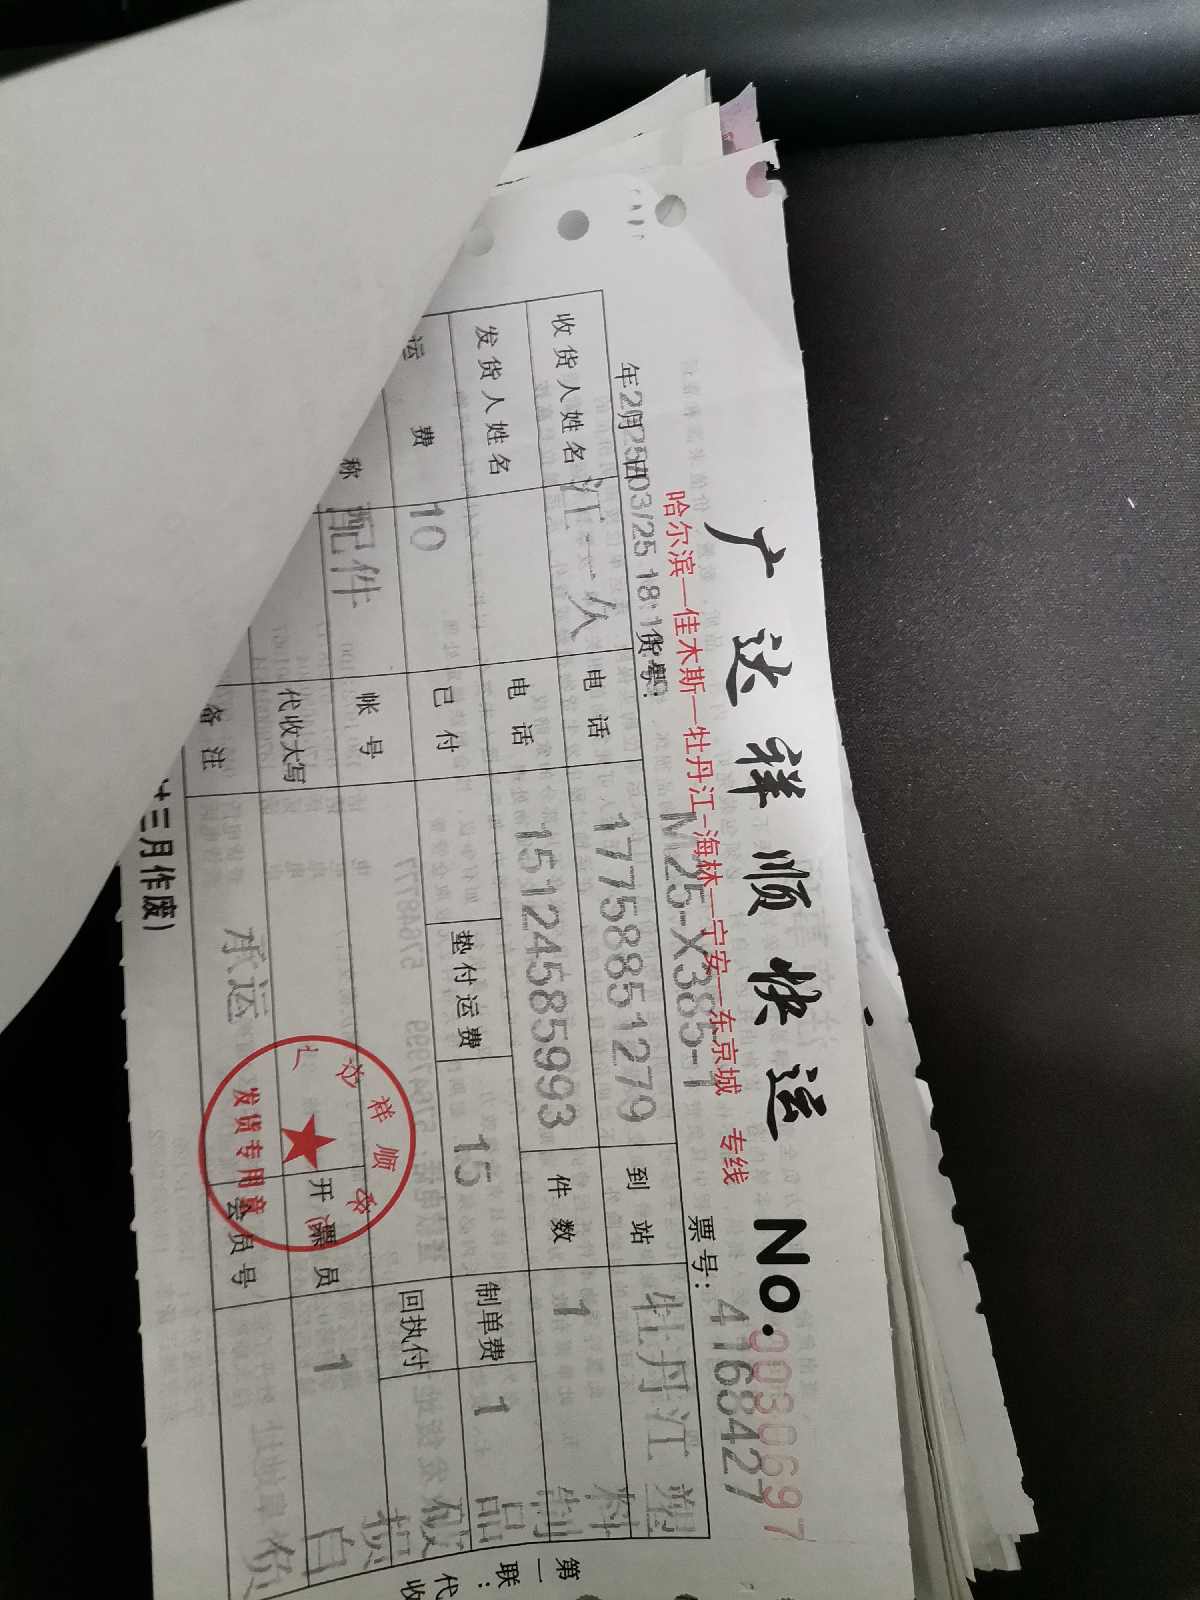 广达祥顺快运 No. 9030697
哈尔滨—佳木斯—牡丹江—海林—宁安—东京城 专线
票号： 4168427
年 月 日 货号： M25-X385-1
收货人姓名 江一久 电话 17758851279 到站 牡丹江
发货人姓名 电话 15124585993 件数 1
运费 10 已付 垫付运费 15 制单费 1
称 配件 帐号 回执付
代收大写 开票员 1
备注 承运 会员号
塑料制品破损自负
第一联：代收
廿三月作废）
祥顺
发货专用章